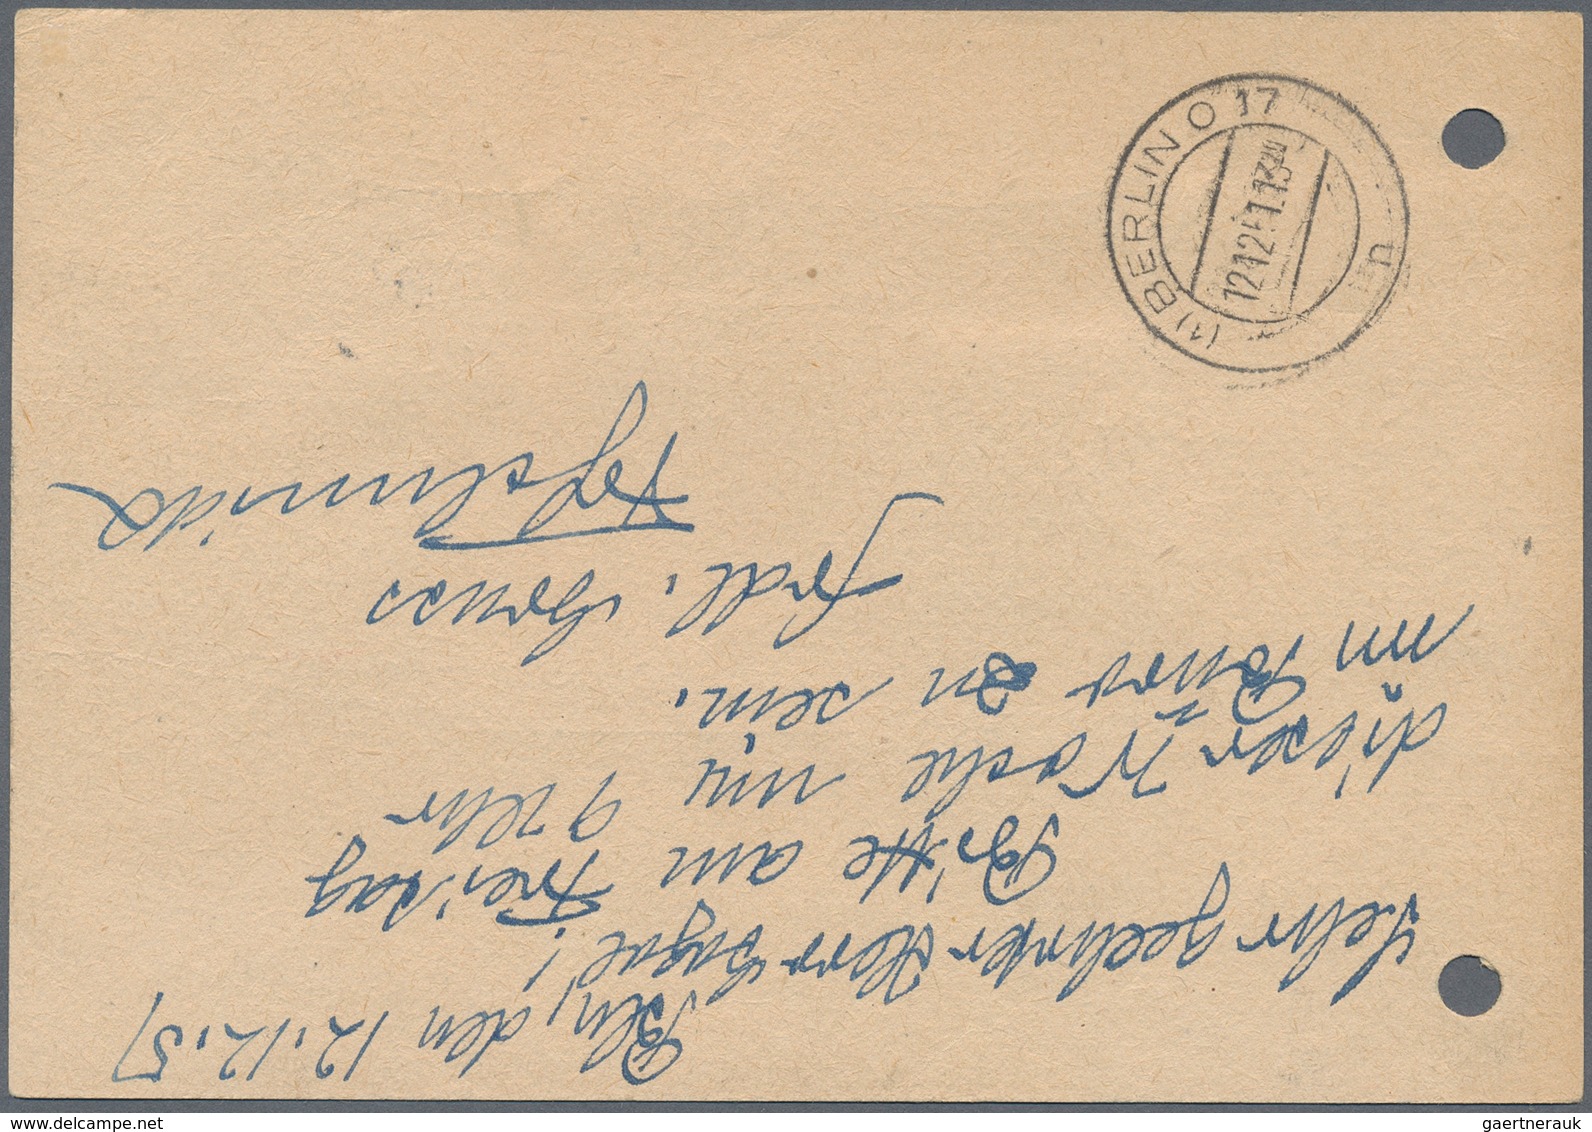 Bln, den 12.12.51
Sehr geehrter Herr
Bitte am Freitag
dieser Woche um 9 Uhr
im Büro zu sein.
frdl. Gruss
(1) BERLIN O 17
12.12.51.13
u
delcampe.net
gaertnerauk